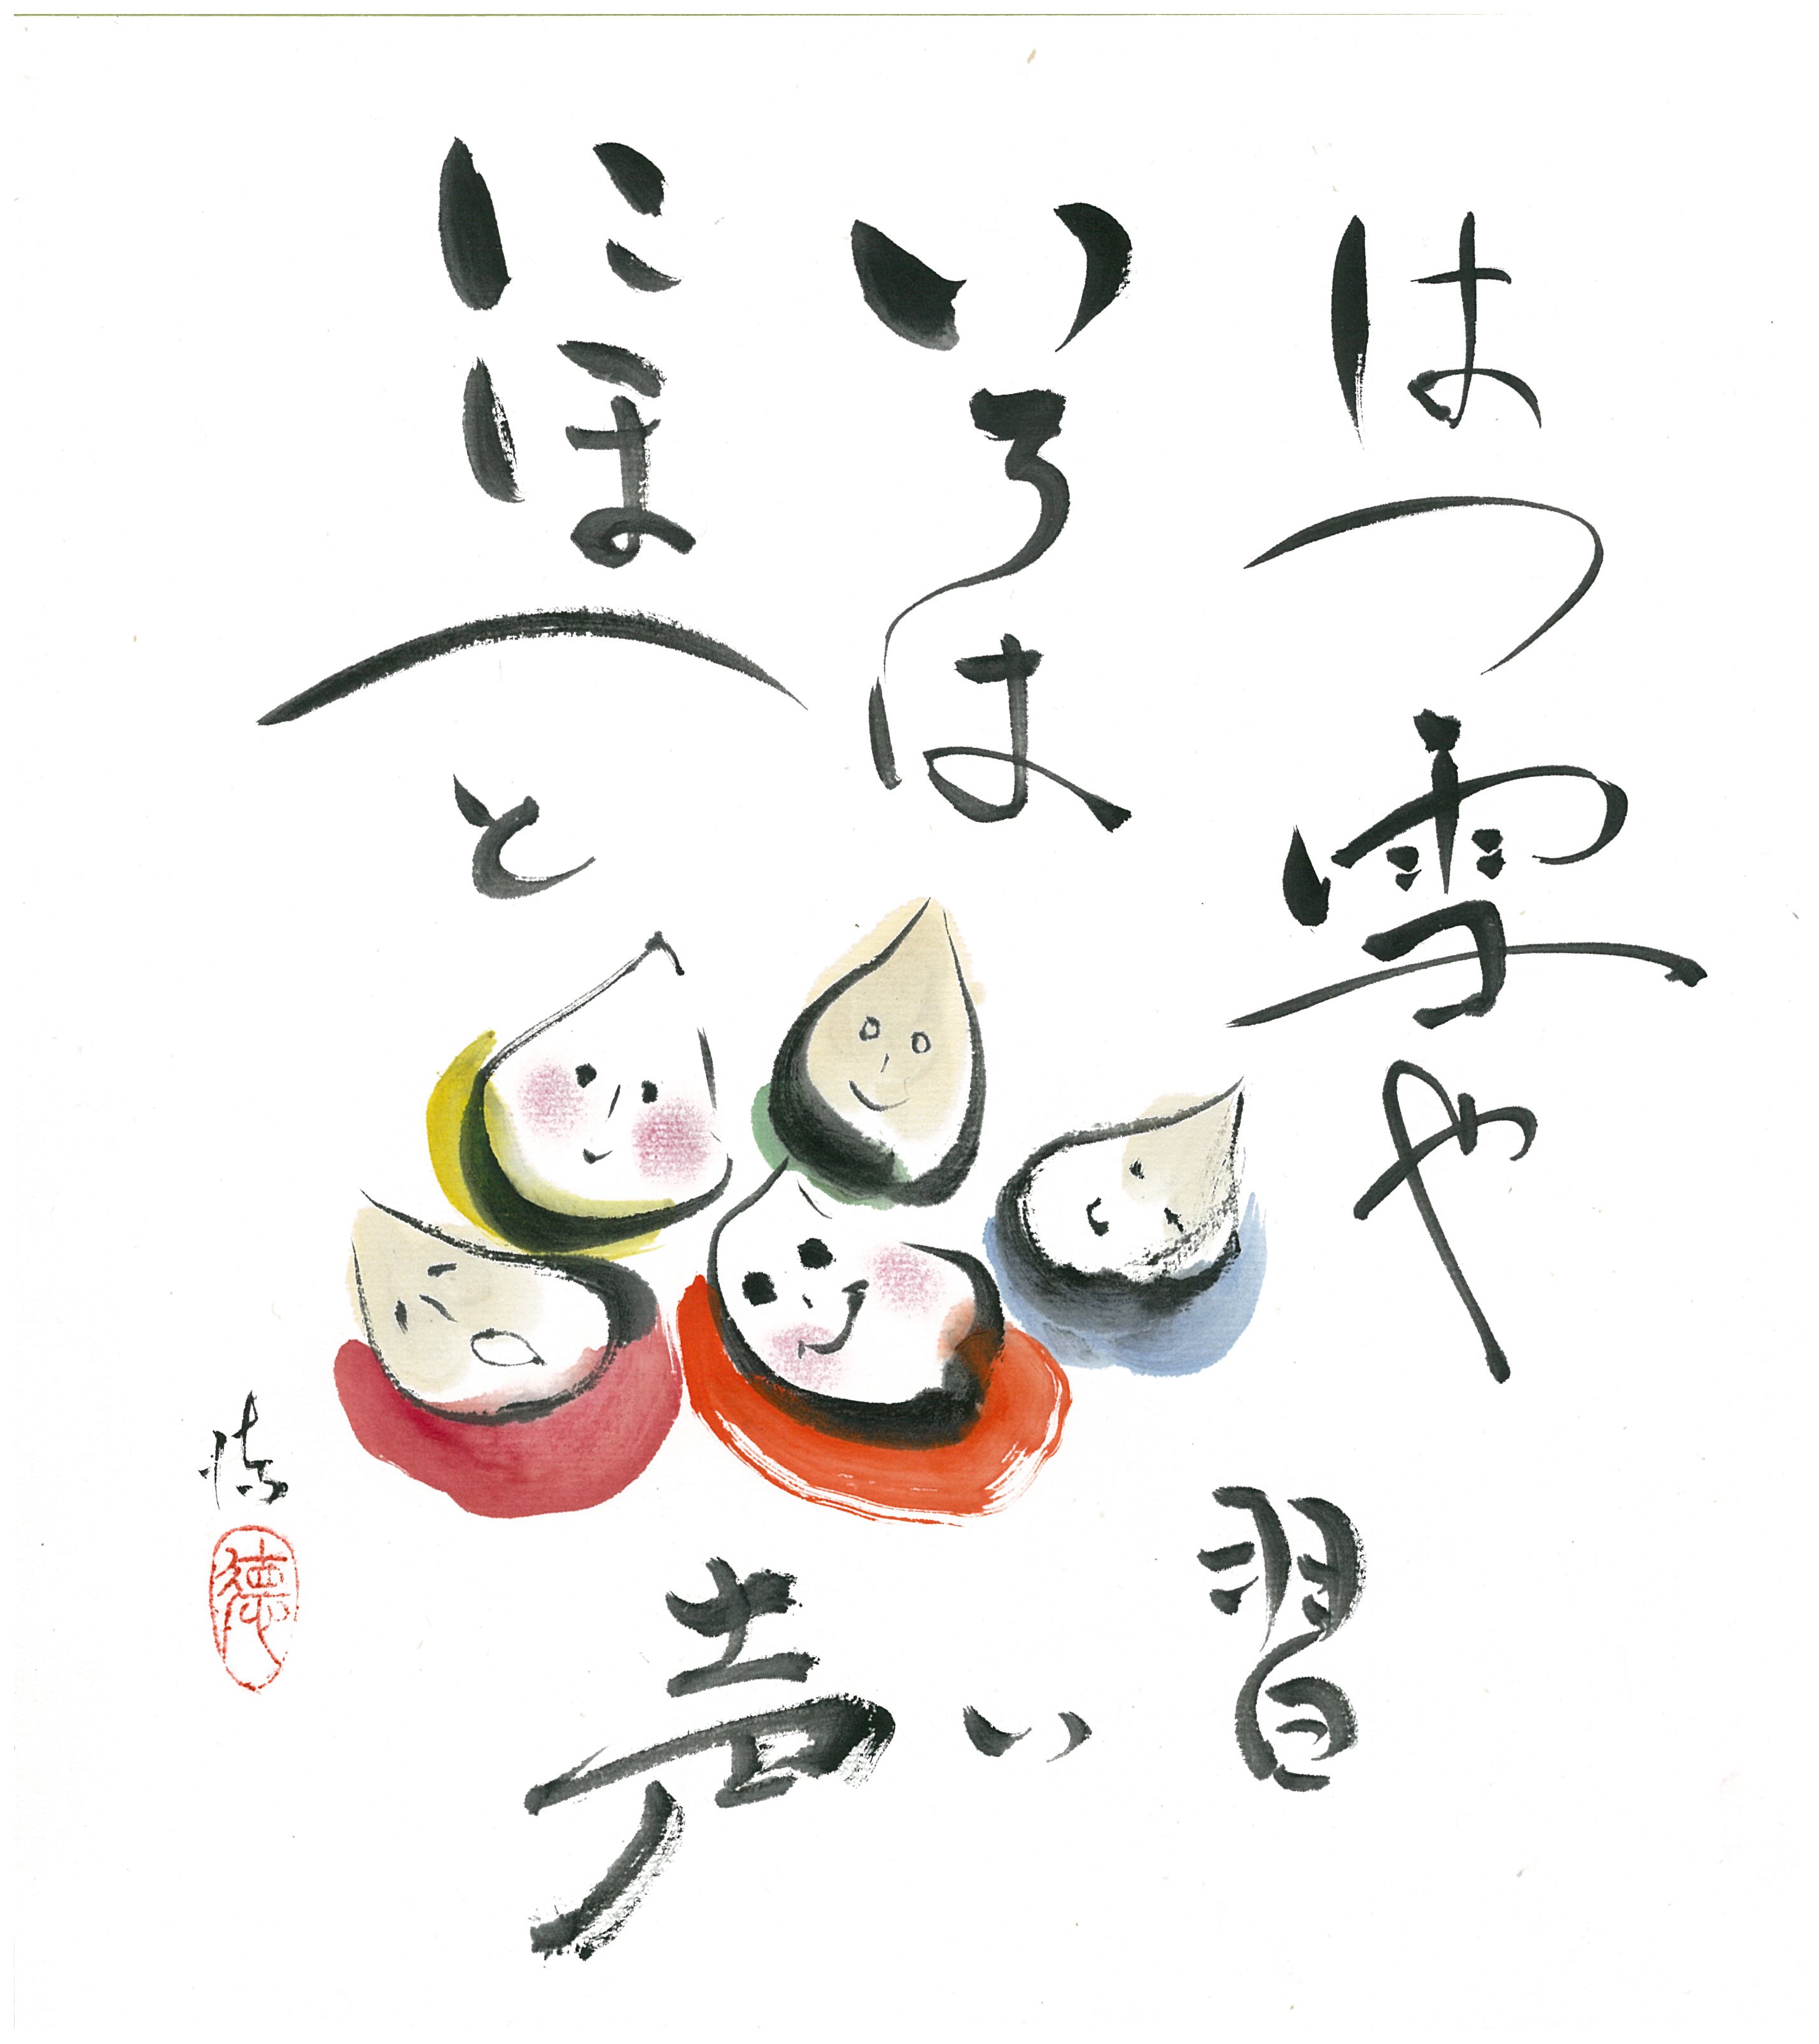 はつ雪や
いろは
にほへと
習い声
徳